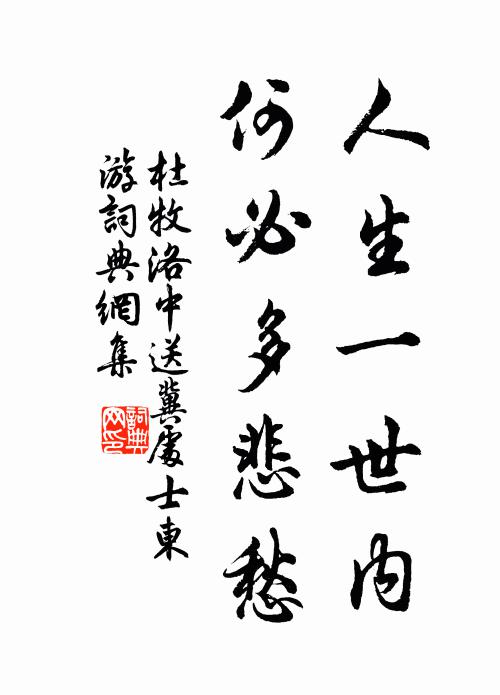 人生一世內
何必多悲愁
杜牧洛中送冀處士東
游詞典網集
詞典
网印